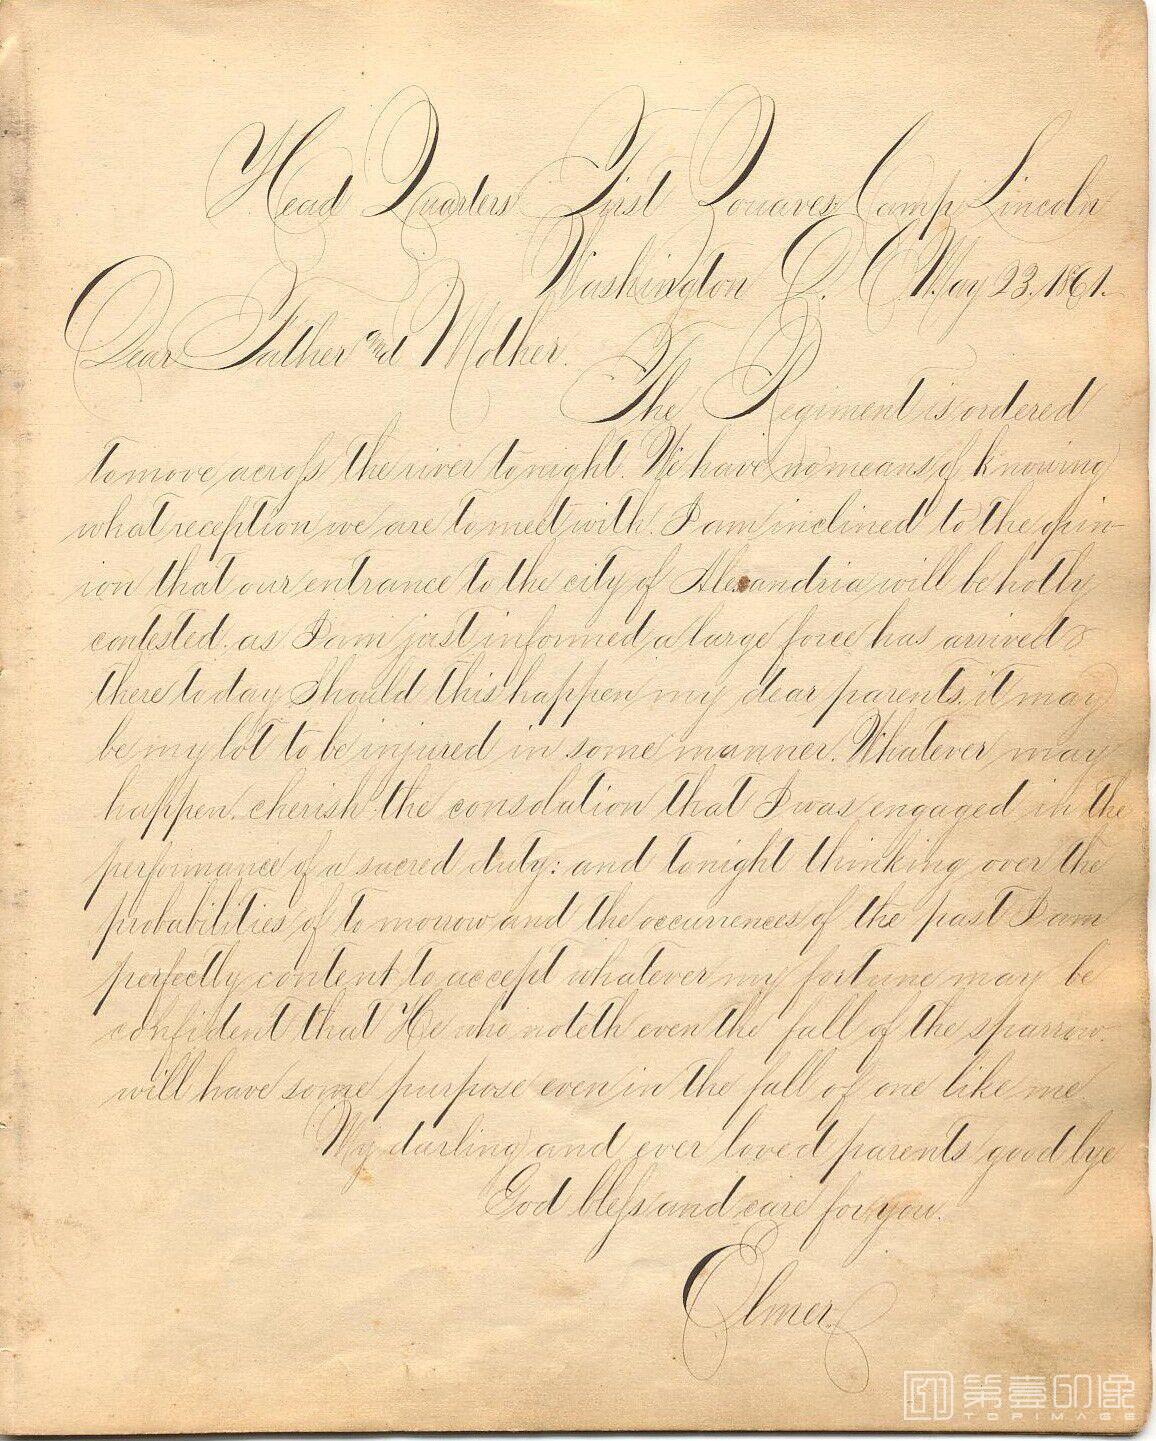 Head Quarters First Zouaves, Camp Lincoln
Washington D. C. May 23, 1861.
Dear Father and Mother.
The Regiment is ordered
to move across the river tonight. We have no means of knowing
what reception we are to meet with. I am inclined to the opin-
ion that our entrance to the city of Alexandria will be hotly
contested. as I am just informed a large force has arrived
there to day Should this happen my dear parents, it may
be my lot to be injured in some manner. Whatever may
happen. cherish the consolation that I was engaged in the
performance of a sacred duty: and tonight thinking over the
probabilities of to morrow and the occurrences of the past I am
perfectly content to accept whatever my fortune may be
confident that He who noteth even the fall of the sparrow.
will have some purpose even in the fall of one like me.
My darling and ever loved parents good bye
God bless and care for you.
Elmer.
第壹印像
TOPIMAGE